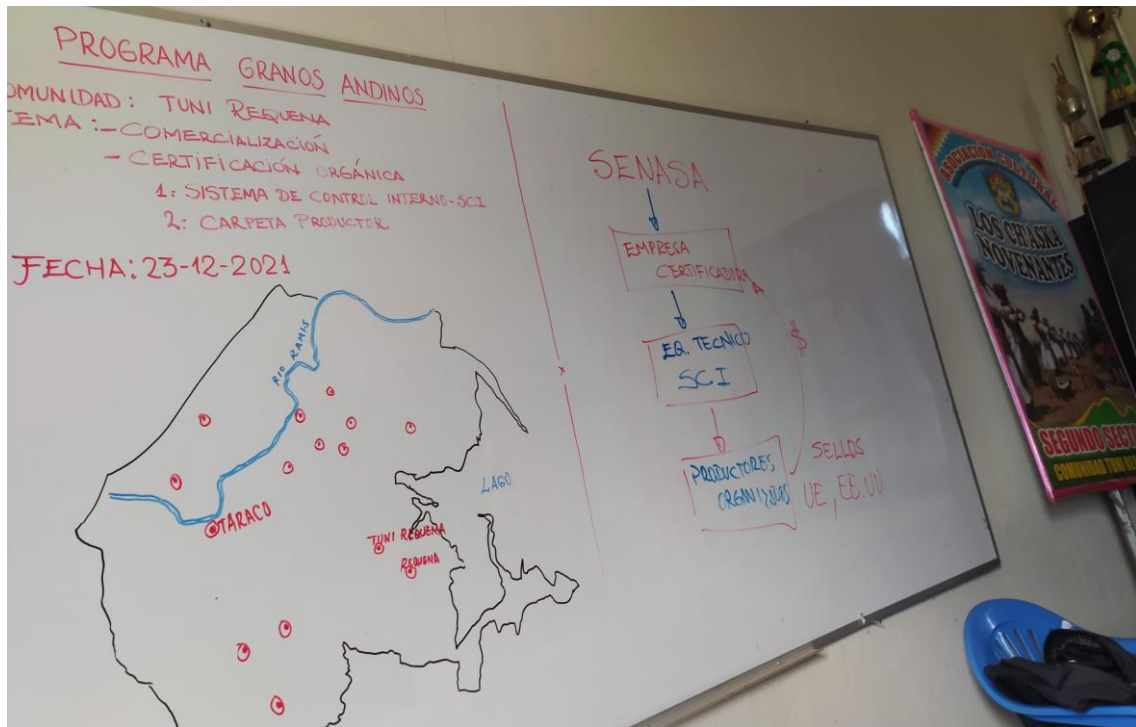 PROGRAMA GRANOS ANDINOS
OMUNIDAD: TUNI REQUENA
EMA:- COMERCIALIZACIÓN
- CERTIFICACIÓN ORGÁNICA
1: SISTEMA DE CONTROL INTERNO-SCI
2: CARPETA PRODUCTOR
FECHA: 23-12-2021
RIO RAMIS
LAGO
TARACO
TUNI REQUEMA
REQUENA
SENASA
EMPRESA
CERTIFICADORA
EQ. TECNICO
SCI
$
PRODUCTORES
SELLOS
UE, EE.UU.
ASOCIACIÓN CULTURAL
LOS CH'ASKA
NOVENANTES
SEGUNDO SECT
COMUNIDAD TUNI RE